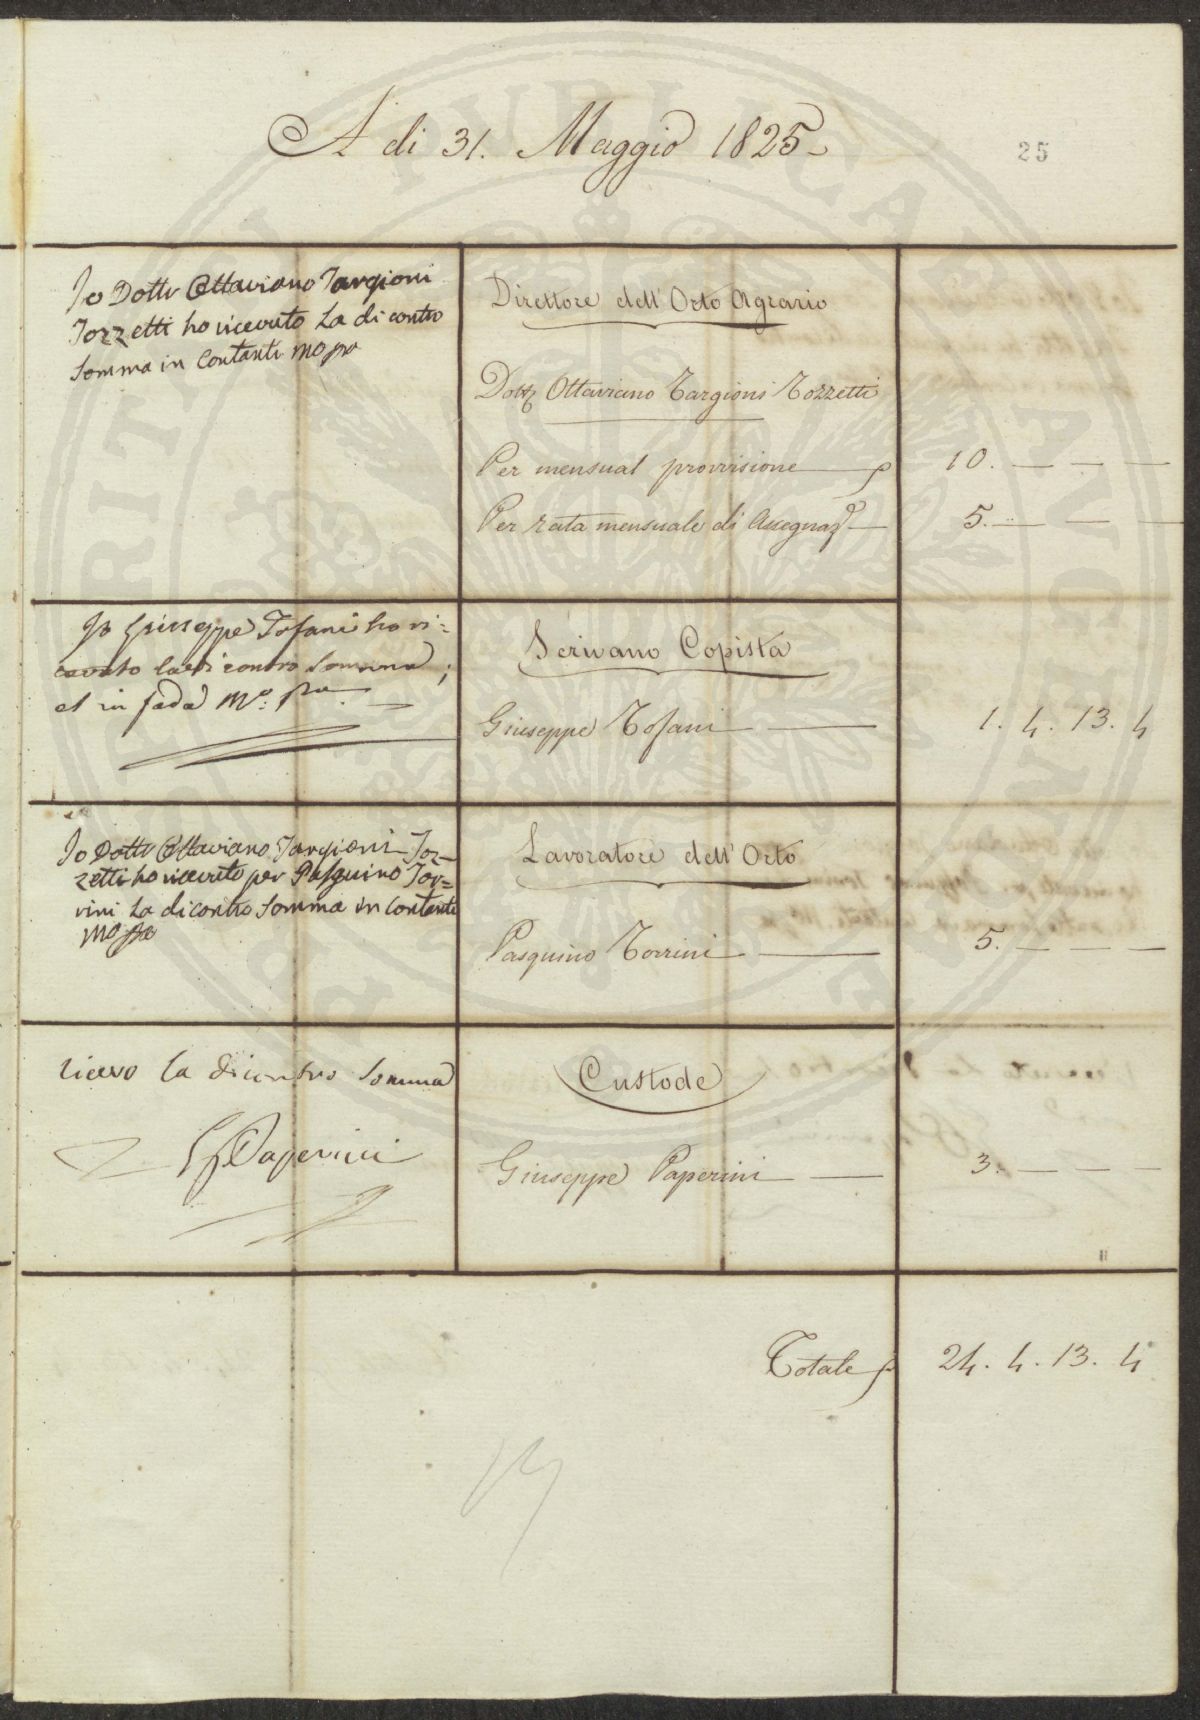 A di 31. Maggio 1825
25
Io Dottr Ottaviano Targioni
Tozzetti ho ricevuto La di contro
Somma in Contanti Mo pa
Direttore dell' Orto Agrario
Dott Ottaviano Targioni Tozzetti
Per mensual provvisione 10. — — —
Per rata mensuale di Assegnaz 5. — — —
Io Giuseppe Tofani ho ri=
cevuto la di contro Somma,
et in fede Mo: pa
Scrivano Copista
Giuseppe Tofani — 1. 4. 13. 4
Io Dottr Ottaviano Targioni Toz=
zetti ho ricevuto per Pasquino Tor=
rini La di contro Somma in Contanti
Mo pa
Lavoratore dell' Orto
Pasquino Torrini — 5. — — —
ricevo la di contro Somma
G Paperini
Custode
Giuseppe Paperini — 3. — — —
Totale 24. 4. 13. 4